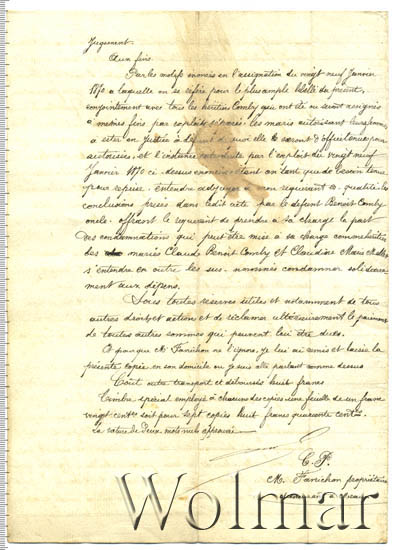 Jugement.
Aux fins
Par les motifs énoncés en l'assignation du vingt neuf Janvier
1870 à laquelle on se réfère pour le plus ample libellé du présent,
conjointement avec tous les héritiers Comby qui ont été ou seront assignés
à mêmes fins par exploits séparés, les maris autorisant leurs femmes
à ester en justice à défaut de quoi elle le seront d'office
autorisées, et l'instance introduite par l'exploit du vingt neuf
Janvier 1870 ci-dessus énoncé étant en tant que de besoin tenue
pour reprise, entendre adjuger à mon requérant ès qualités les
conclusions prises dans l'édit cité par le défunt Benoit Comby
oncle, offrant le requérant de prendre à sa charge la part
des condamnations qui peut être mise à sa charge comme héritier
des mariés Claude Benoit Comby et Claudine Marie
s'entendre en outre les sus-nommés condamner solidaire
ment aux dépens.
Sous toutes réserves utiles et notamment de tous
autres droits et action et de réclamer ultérieurement le paiement
de toutes autres sommes qui peuvent lui être dues.
Et pour que M. Fanichon ne l'ignore, je lui ai remis et laissé la
présente copie, en son domicile où je suis allé parlant comme dessus
Coût outre transport et déboursés huit francs
timbre spécial employé à chacune des copies une feuille de un franc
vingt centes soit pour sept copies huit francs quarante centes.
La rature de deux mots nuls approuvée
C. P.
M. Fanichon propriétaire
demeurant à
Wolmar